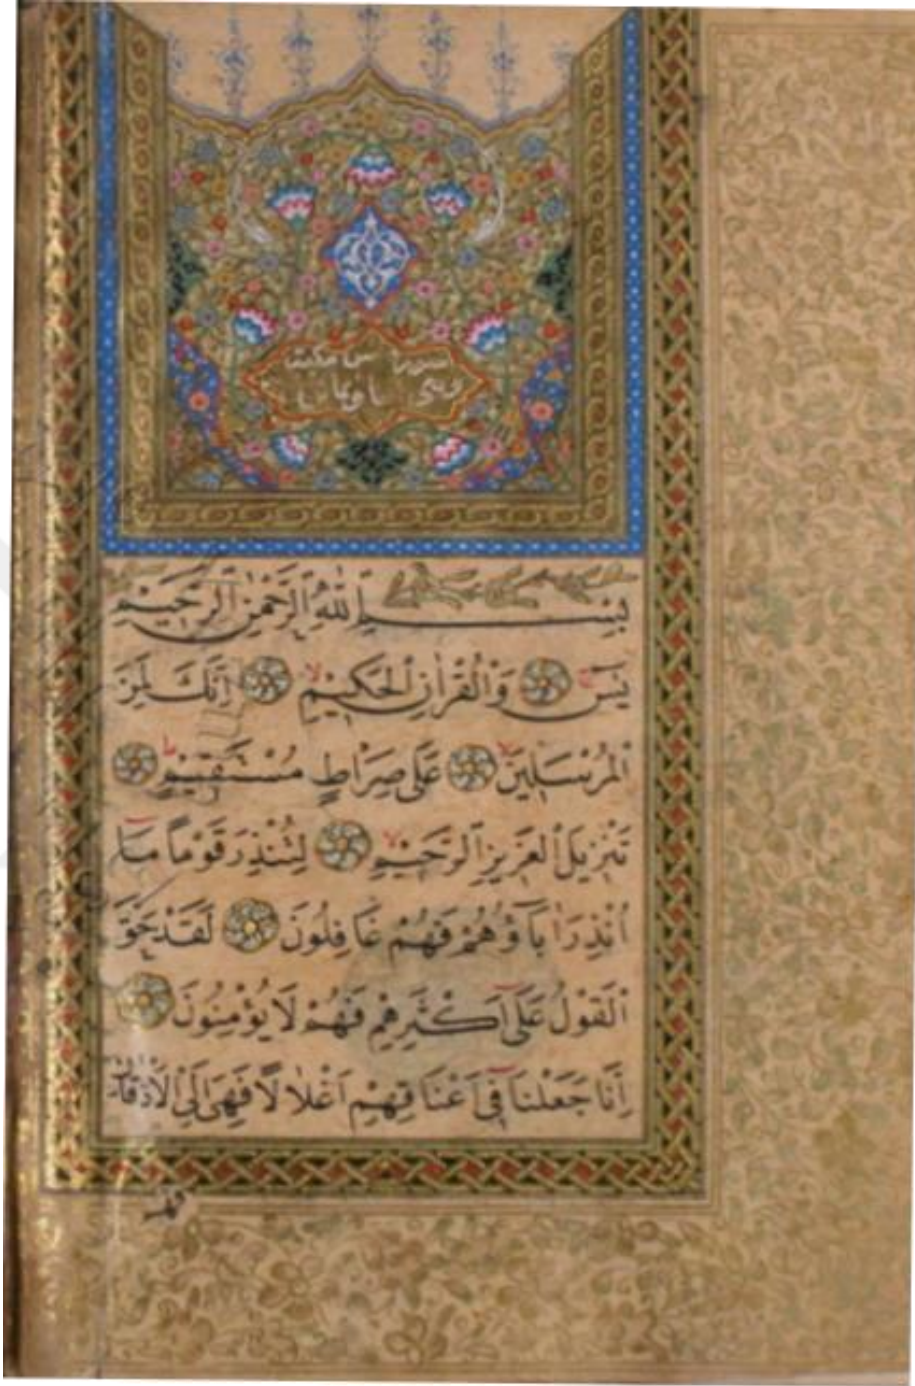 سورة يس مكية
وهي آيات
بِسْمِ اللّٰهِ الرَّحْمٰنِ الرَّحِيمِ
يٰسٓ وَالْقُرْاٰنِ الْحَكِيمِ اِنَّكَ لَمِنَ
الْمُرْسَلِينَ عَلٰى صِرَاطٍ مُسْتَقِيمٍ
تَنْزِيلَ الْعَزِيزِ الرَّحِيمِ لِتُنْذِرَ قَوْمًا مَٓا
اُنْذِرَ اٰبَٓاؤُهُمْ فَهُمْ غَافِلُونَ لَقَدْ حَقَّ
الْقَوْلُ عَلٰٓى اَكْثَرِهِمْ فَهُمْ لَا يُؤْمِنُونَ
اِنَّا جَعَلْنَا فٓى اَعْنَاقِهِمْ اَغْلَالًا فَهِىَ اِلَى الْاَذْقَانِ
فهم